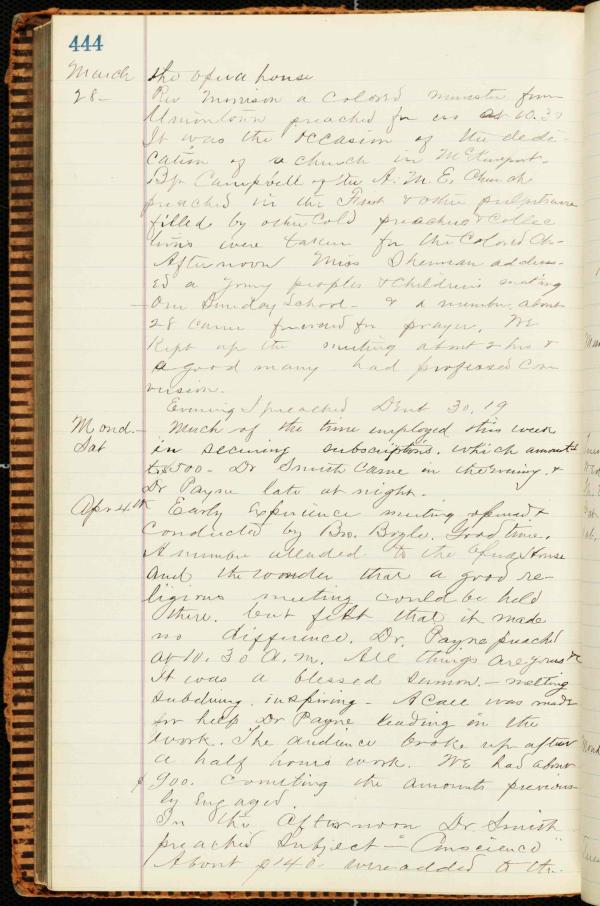 444
March the opera house
28- Rev Morrison a colored minister from
Uniontown preached for us at 10.30
It was the occasion of the dedi-
cation of a church in McKeesport-
Bp Campbell of the A. M. E. Church
preached in the First & other pulpits were
filled by other Cold preachers & Collec
tions were taken for the Colored Ch-
Afternoon Miss Sherman address-
ed a young peoples & childrens meeting
- Our Sunday School - & a number about
28 came forward for prayer. We
Kept up the meeting about 2 hrs &
a good many had professed Con
version.
Evening I preached Deut 30.19
Mond.- Much of the time employed this week
Sat in securing subscriptions. which amounts
to 500 - Dr Smith came in the evening. &
Dr Payne late at night.
Apr 4th Early Experience meeting opened &
conducted by Bro. Boyle. Good time.
A number attended to the Opera House
and the wonder that a good re-
ligious meeting could be held
there. but felt that it made
no difference. Dr. Payne preachd
at 10.30 a.m. All things are yours &c
It was a blessed sermon. - melting
subduing. inspiring - A call was made
for help Dr Payne leading in the
work. The audience broke up after
a half hours work. We had about
$900. counting the amounts previous-
ly Engaged.
In the Afternoon Dr. Smith
preached Subject = "Conscience"
About $140 were added to the